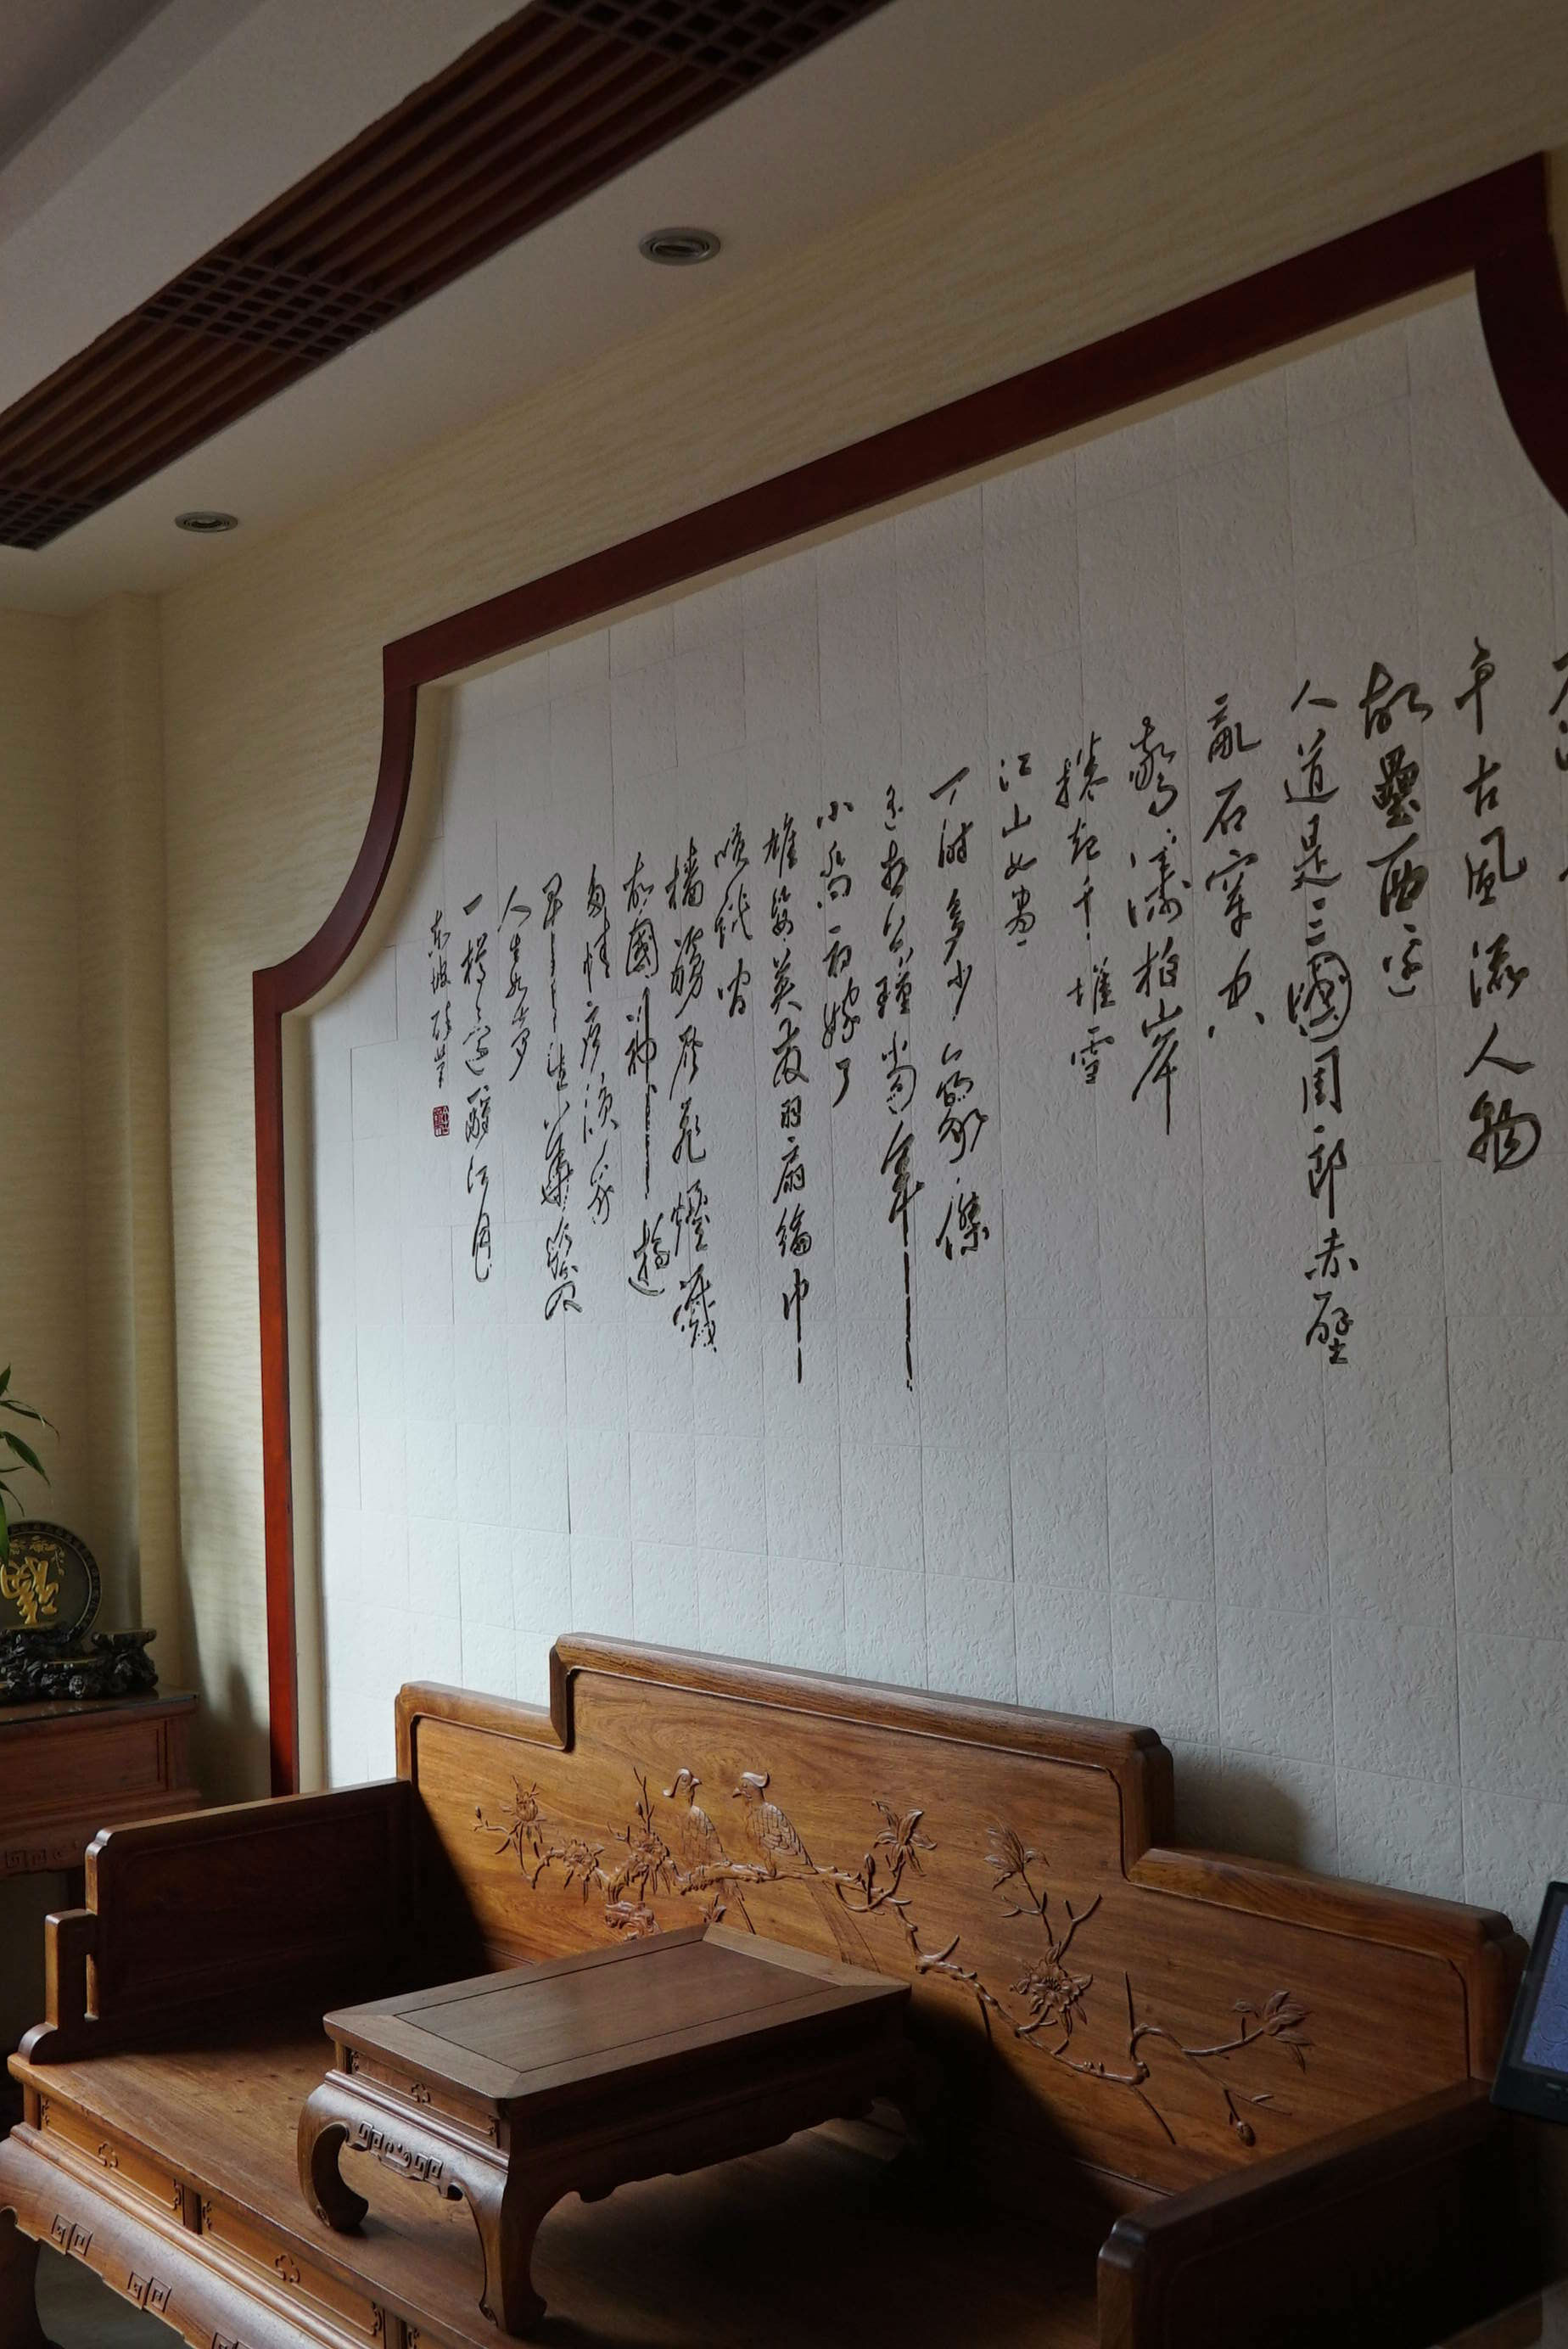 千古風流人物
故壘西邊
人道是三國周郎赤壁
亂石穿空
驚濤拍岸
捲起千堆雪
江山如畫
一時多少豪傑
遙想公瑾當年
小喬初嫁了
雄姿英發羽扇綸巾
談笑間
檣艣灰飛煙滅
故國神遊
多情應笑我
早生華髮
人生如夢
一樽還酹江月
東坡